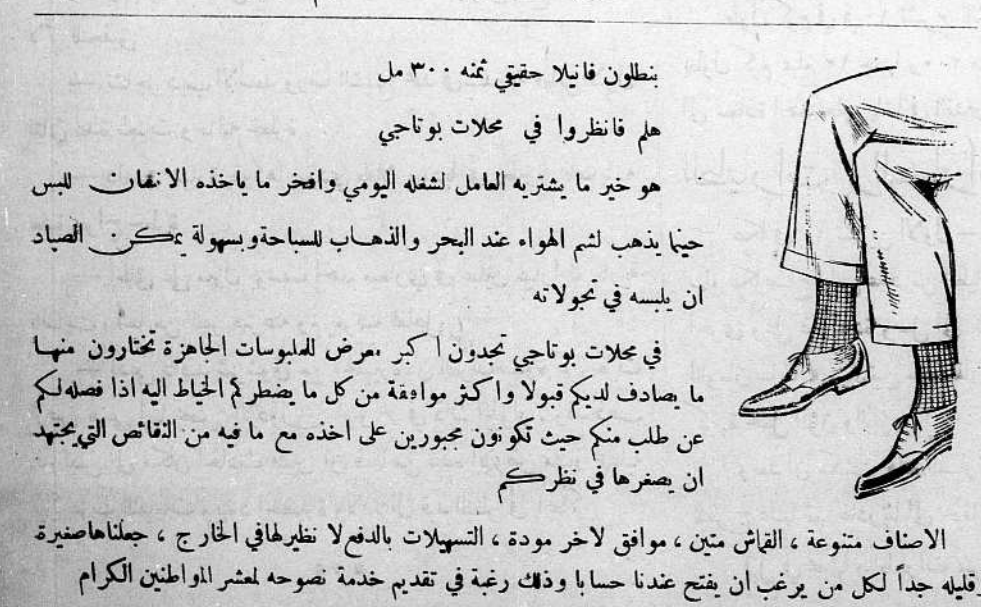 بنطلون فانيلا حقيقي ثمنه ٣٠٠ مل
هلم فانظروا في محلات بوتاجي
هو خير ما يشتريه العامل لشغله اليومي وافخر ما ياخذه الانفان للبس
حينما يذهب لشم الهواء عند البحر والذهاب للسباحة وبسهولة يمكن الصياد
ان يلبسه في تجولاته
في محلات بوتاجي تجدون اكبر معرض للملبوسات الجاهزة تختارون منها
ما يصادف لديكم قبولا واكثر موافقة من كل ما يضطركم الخياط اليه اذا فصله لكم
عن طلب منكم حيث تكونون مجبورين على اخذه مع ما فيه من النقائص التي يجتهد
ان يصغرها في نظركم
الاصناف متنوعة ، القماش متين ، موافق لاخر مودة ، التسهيلات بالدفع لا نظير لها في الخارج ، جعلناها صغيرة
وقليله جداً لكل من يرغب ان يفتح عندنا حسابا وذلك رغبة في تقديم خدمة نصوحه لمعشر المواطنين الكرام